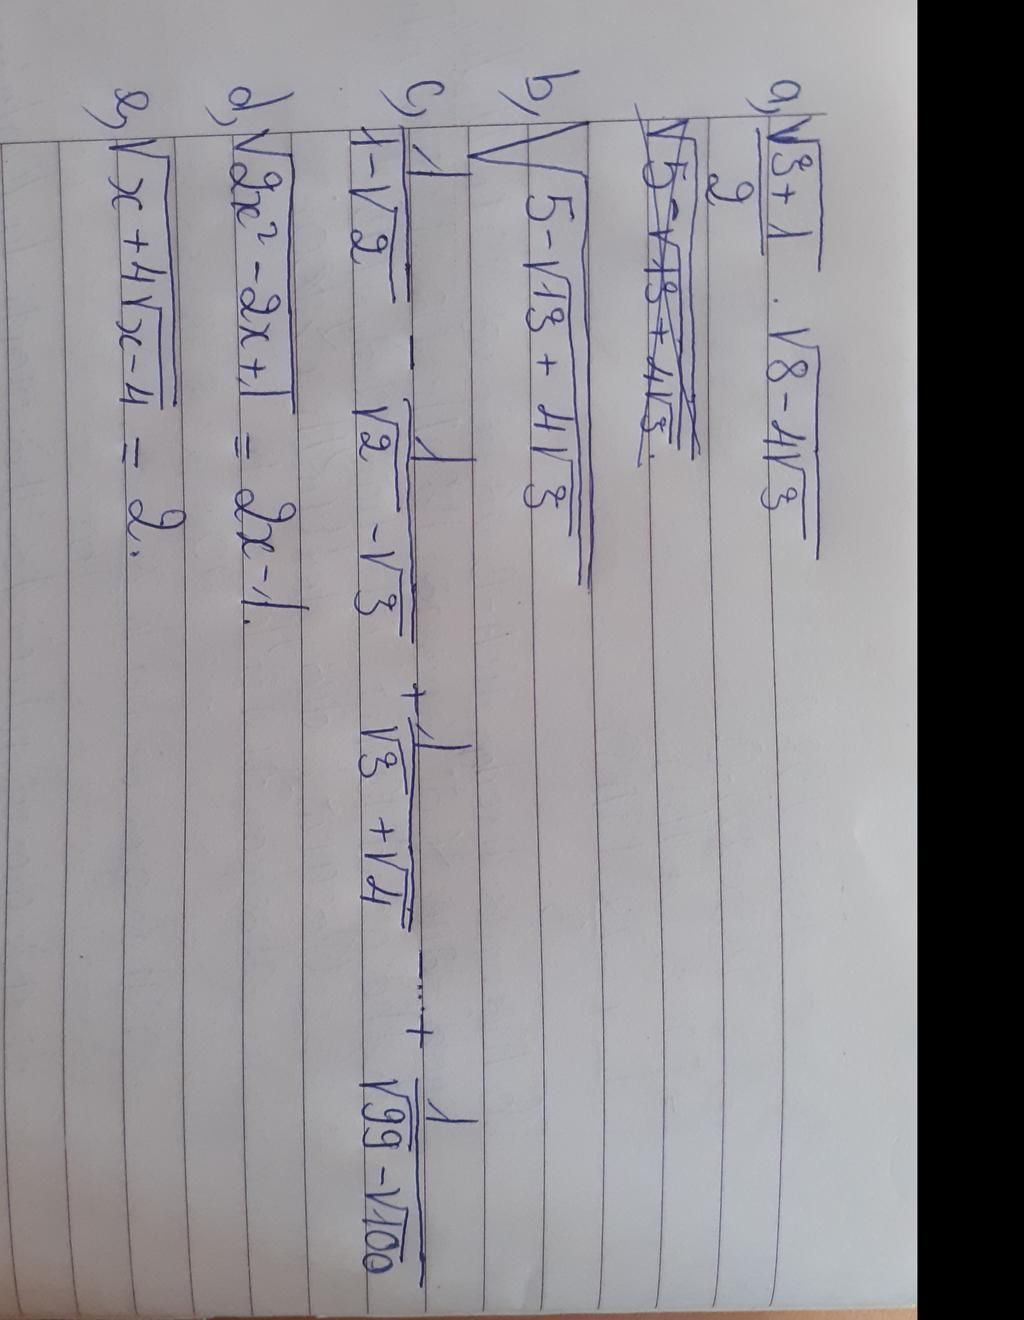 a, √3+1/2 . √(8-4√3)
√(5-√13+4√3).
b, √(5-√(13+4√3))
c, 1/(1-√2) - 1/(√2-√3) + 1/(√3+√4) -....+ 1/(√99-√100)
d, √(2x²-2x+1) = 2x-1.
e, √(x+4√(x-4)) = 2.